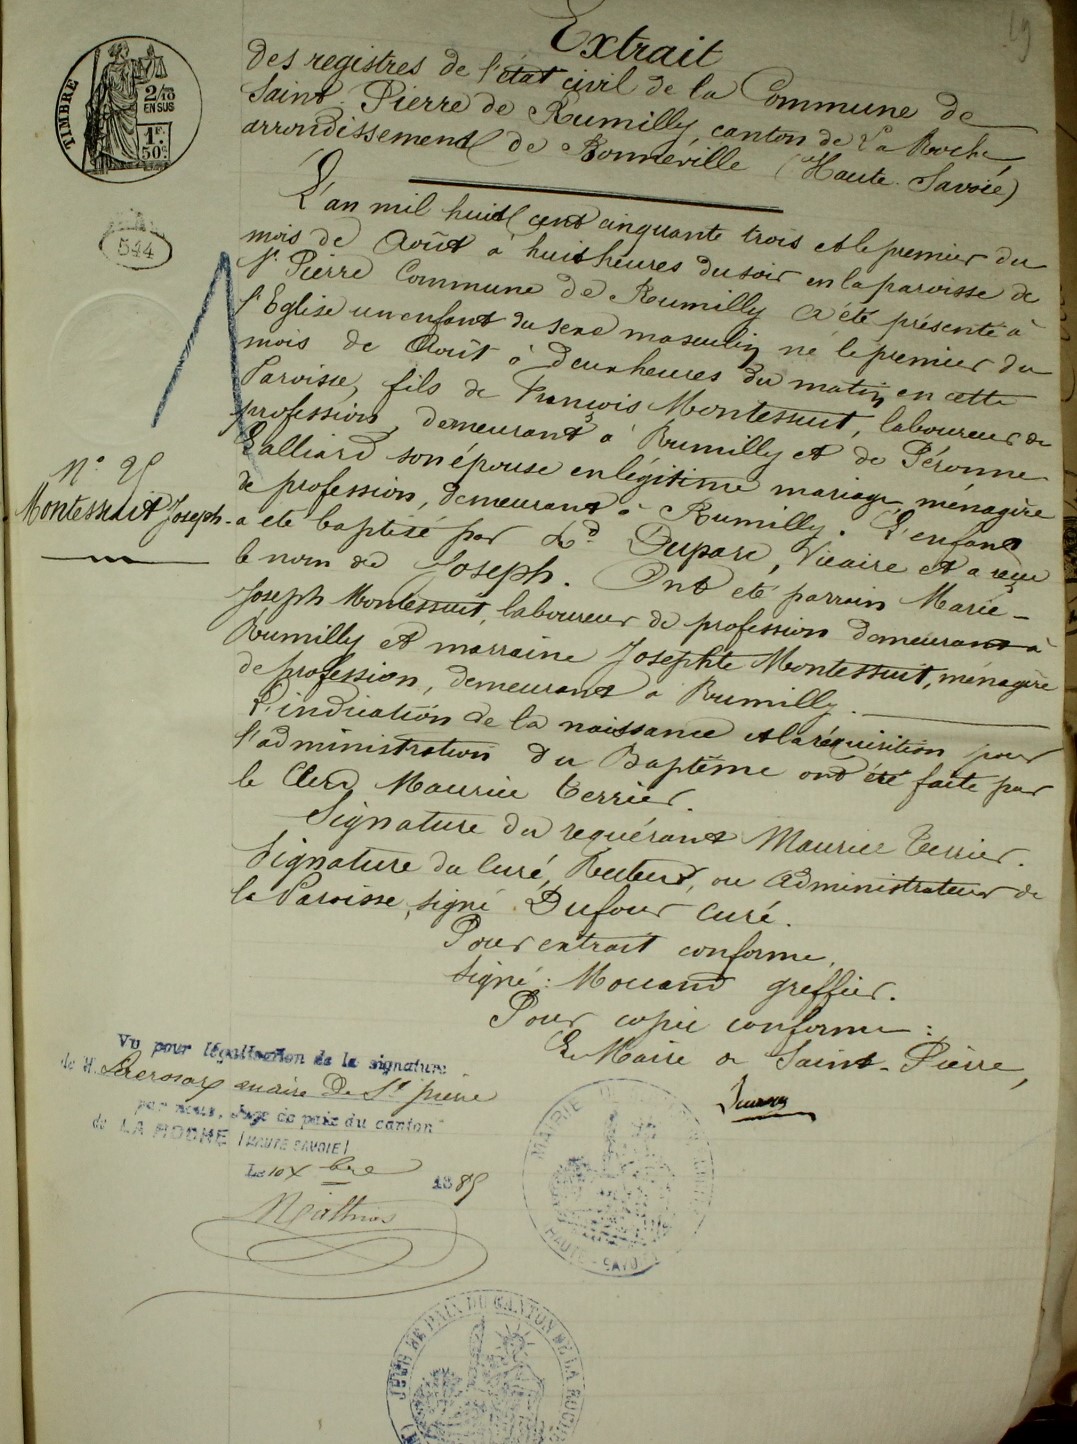 Extrait
des registres de l'état civil de la Commune de
Saint Pierre de Rumilly, canton de La Roche
arrondissement de Bonneville (Haute-Savoie)
TIMBRE
2/10
EN SUS
1F.
50c.
544
L'an mil huit cent cinquante trois et le premier du
mois de Août à huit heures du soir en la paroisse de
St Pierre Commune de Rumilly a été présenté à
l'Eglise un enfant du sexe masculin né le premier du
mois de Août à deux heures du matin en cette
Paroisse, fils de François Montessuit, laboureur de
profession, demeurant à Rumilly et de Péronne
Galliard son épouse en légitime mariage, ménagère
de profession, demeurant à Rumilly. L'enfant
a été baptisé par Rd Duparc, Vicaire et a reçu
le nom de Joseph. Ont été parrain Marie-
Joseph Montessuit, laboureur de profession demeurant à
Rumilly et marraine Josephte Montessuit, ménagère
de profession, demeurant à Rumilly.
L'indication de la naissance et la réquisition pour
l'administration du Baptême ont été faite par
le Clerc Maurice Terrier.
Signature du requérant Maurice Terrier.
Signature du Curé, Recteur, ou Administrateur de
la Paroisse, signé Dufour curé.
Pour extrait conforme,
signé: Mouand greffier.
Pour copie conforme:
Le Maire de Saint-Pierre,
N° 25
Montessuit Joseph
Vu pour légalisation de la signature
de M. maire De St pierre
par nous, Juge de paix du canton
de LA ROCHE (HAUTE SAVOIE)
Le 10 Xbre 1885
MAIRIE DE
HAUTE-SAVOIE
JUGE DE PAIX DU CANTON DE LA ROCHE